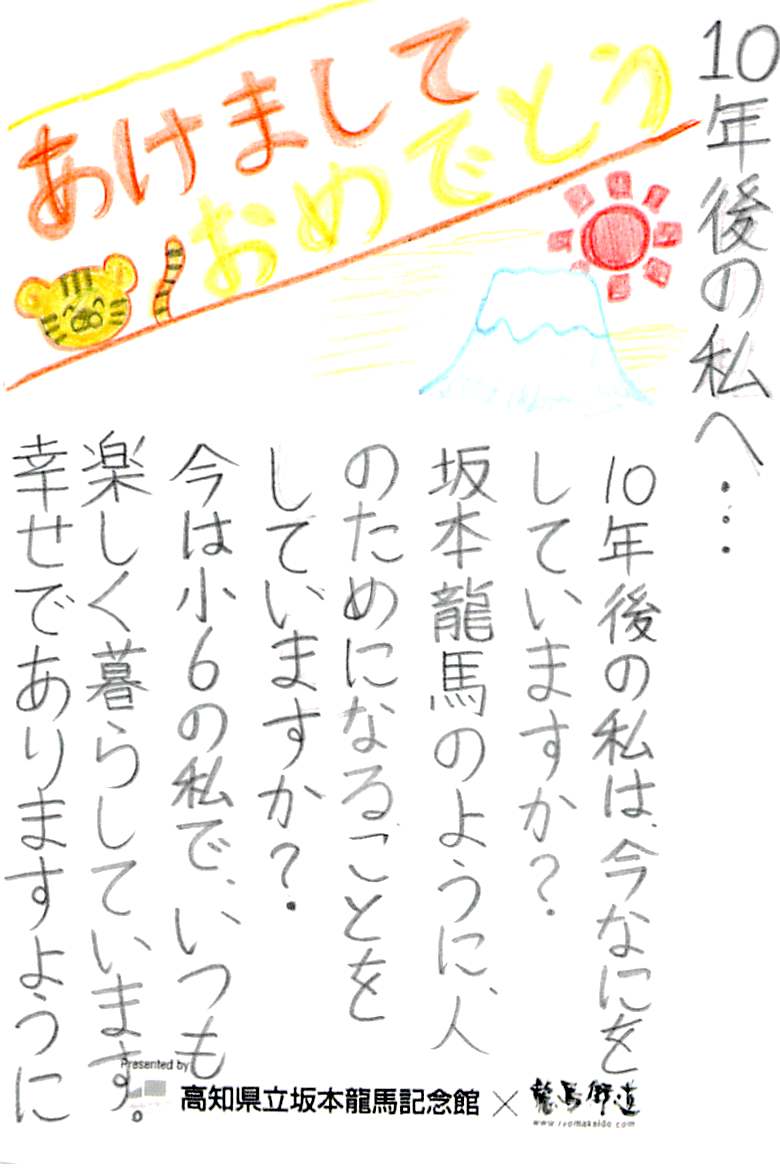 あけまして
おめでとう
10年後の私へ…
10年後の私は、今なにを
していますか？
坂本龍馬のように、人
のためになることを
していますか？
今は小6の私で、いつも
楽しく暮らしています。
幸せでありますように
Presented by
高知県立坂本龍馬記念館×龍馬街道
www.ryomakaido.com